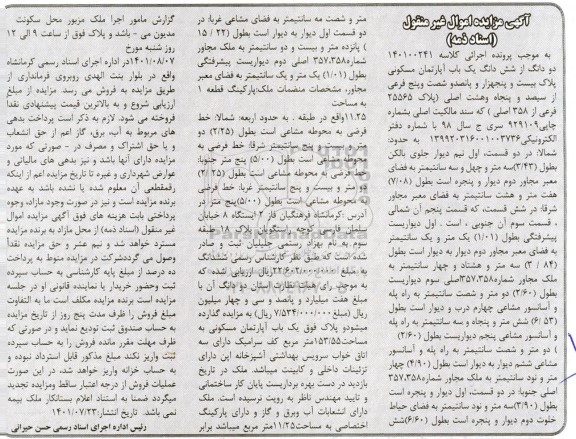 آگهی مزایده اموال غیر منقول
(اسناد ذمه)
به موجب پرونده اجرائی کلاسه ۱۴۰۱۰۰۲۴۱
دو دانگ از شش دانگ یک باب آپارتمان مسکونی
پلاک بیست و پنجهزار و پانصدو شصت وپنج فرعی
از سیصد و پنجاه وهشت اصلی (پلاک ۲۵۵۶۵
فرعی از ۳۵۸ اصلی ) که سند مالکیت اصلی بشماره
چاپی۹۲۹۱۰۹ سری ج سال ۹۸ با شماره دفتر
الکترونیکی۱۳۹۹۲۰۳۱۶۰۰۱۰۰۳۷۳۶ به حدود:
شمالا: در دو قسمت، اول نیم دیوار جلوی بالکن
بطول (۳/۴۳)سه متر و چهل و سه سانتیمتر به فضای
معبر مجاور دوم دیوار و پنجره است بطول (۷/۰۸)
هفت متر و هشت سانتیمتر به فضای معبر مجاور
شرقا: در شش قسمت، که قسمت پنجم آن شمالی
، قسمت سوم آن جنوبی ، است . اول دیواریست
پیشرفتگی بطول (۱/۰۱) یک متر و یک سانتیمتر
به فضای معبر مجاور دوم دیوار به دیوار است بطول
(۳/ ۸۴) سه متر و هشتاد و چهار سانتیمتر به
ملک مجاور شماره۳۵۷،۳۵۸اصلی سوم دیواریست
بطول (۲/۶۰) دو متر و شصت سانتیمتر به راه پله
و آسانسور مشاعی چهارم درب و دیوار است بطول
(۶/ ۵۳) شش متر و پنجاه و سه سانتیمتر به راه پله
و آسانسور مشاعی پنجم دیواریست بطول (۲/۶۰)
) دو متر و شصت سانتیمتر به راه پله و آسانسور
مشاعی ششم دیوار به دیوار است بطول (۴/۹۰) چهار
متر و نود سانتیمتر به ملک مجاور شماره۳۵۷،۳۵۸
اصلی جنوبا: در دو قسمت، اول دیوار و پنجره است
بطول (۳/۹۰)سه متر و نود سانتیمتر به فضای حیاط
خلوت دوم دیوار و پنجره است بطول (۶/۶۰)شش
متر و شصت سانتیمتر به فضای مشاعی غربا: در
دو قسمت اول دیوار به دیوار است بطول (۲۲ / ۱۵
) پانزده متر و بیست و دو سانتیمتر به ملک مجاور
شماره۳۵۷،۳۵۸ اصلی دوم دیواریست پیشرفتگی
بطول (۱/۰۱) یک متر و یک سانتیمتر به فضای معبر
مجاور، مشخصات منضمات ملک:پارکینگ قطعه ۱
به مساحت
۱۱.۲۵واقع در طبقه . به حدود اربعه: شمالا: خط
فرضی به محوطه مشاعی است بطول (۲/۲۵) دو
متر و بیست و پنج سانتیمتر شرقا: خط فرضی به
محوطه مشاعی است بطول (۵/۰۰) پنج متر جنوبا:
خط فرضی به محوطه مشاعی است بطول (۲/۲۵)
دو متر و بیست و پنج سانتیمتر غربا: خط فرضی
به محوطه مشاعی است بطول (۵/۰۰)پنج متر در
آدرس :کرمانشاه فرهنگیان فاز ۲ ایستگاه ۸ خیابان
سلمان فارسی کوچه پرستوییان پلاک ۸ طبقه
سوم به نام بهزاد رستمی جلیلیان ثبت و صادر
شده است که طبق نظر کارشناس رسمی ششدانگ
به مبلغ ۲۲۶۰۲۰۰۰۰۰۰ریال ارزیابی شده: که
به موجب رای هیات نظارت استان دو دانگ آن با
مبلغ هفت میلیارد و پانصد و سی و چهار میلیون
ریال (۷/۵۳۴/۰۰۰/۰۰۰ ریال) به مزایده گذارده
میشودو پلاک فوق یک باب آپارتمان مسکونی به
مساحت۱۵۳/۵۵متر مربع کف سرامیک دارای سه
اتاق خواب سرویس بهداشتی آشپزخانه این دارای
تزئینات داخلی و کابینت میباشد. ملک در تاریخ
بازدید در دست بهره برداریست پایان کار ساختمانی
و تایید مهندس ناظر به رویت نرسیده است. ملک
دارای انشعابات آب وبرق و گاز و دارای پارکینگ
اختصاصی به مساحت۱۱/۲۵متر مربع میباشد برابر
گزارش مامور اجرا ملک مزبور محل سکونت
مدیون می - باشد و پلاک فوق از ساعت ۹ الی ۱۲
روز شنبه مورخ
۱۴۰۱/۰۸/۰۷در اداره اجرای اسناد رسمی کرمانشاه
واقع در بلوار بنت الهدی روبروی فرمانداری از
طریق مزایده به فروش می رسد. مزایده از مبلغ
ارزیابی شروع و به بالاترین قیمت پیشنهادی نقداً
فروخته می شود. لازم به ذکر است پرداخت بدهی
های مربوط به آب، برق، گاز اعم از حق انشعاب
و یا حق اشتراک و مصرف در - صورتی که مورد
مزایده دارای آنها باشد و نیز بدهی های مالیاتی و
عوارض شهرداری و غیره تا تاریخ مزایده اعم از اینکه
رقمقطعی آن معلوم شده یا نشده باشد به عهده
برنده مزایده است و نیز در صورت وجود مازاد، وجوه
پرداختی بابت هزینه های فوق آگهی مزایده اموال
غیر منقول (اسناد ذمه) از محل مازاد به برنده مزایده
مسترد خواهد شد و نیم عشر و حق مزایده نقداً
وصول می گرددشرکت در مزایده منوط به پرداخت
ده درصد از مبلغ پایه کارشناسی به حساب سپرده
ثبت وحضور خریدار یا نماینده قانونی او در جلسه
مزایده است برنده مزایده مکلف است ما به التفاوت
مبلغ فروش را ظرف مدت پنج روز از تاریخ مزایده
به حساب صندوق ثبت تودیع نماید و در صورتی که
ظرف مهلت مقرر مانده فروش را به حساب سپرده
ثبت واریز نکند مبلغ مذکور قابل استرداد نبوده و
به حساب خزانه واریز خواهد شد، در این صورت
عملیات فروش از درجه اعتبار ساقط ومزایده تجدید
میگردد ضمنا به استناد اعلام بستانکار ملک بیمه
نمی باشد. تاریخ انتشار:۱۴۰۱/۰۷/۲۳
رئیس اداره اجرای اسناد رسمی حسن حیرانی